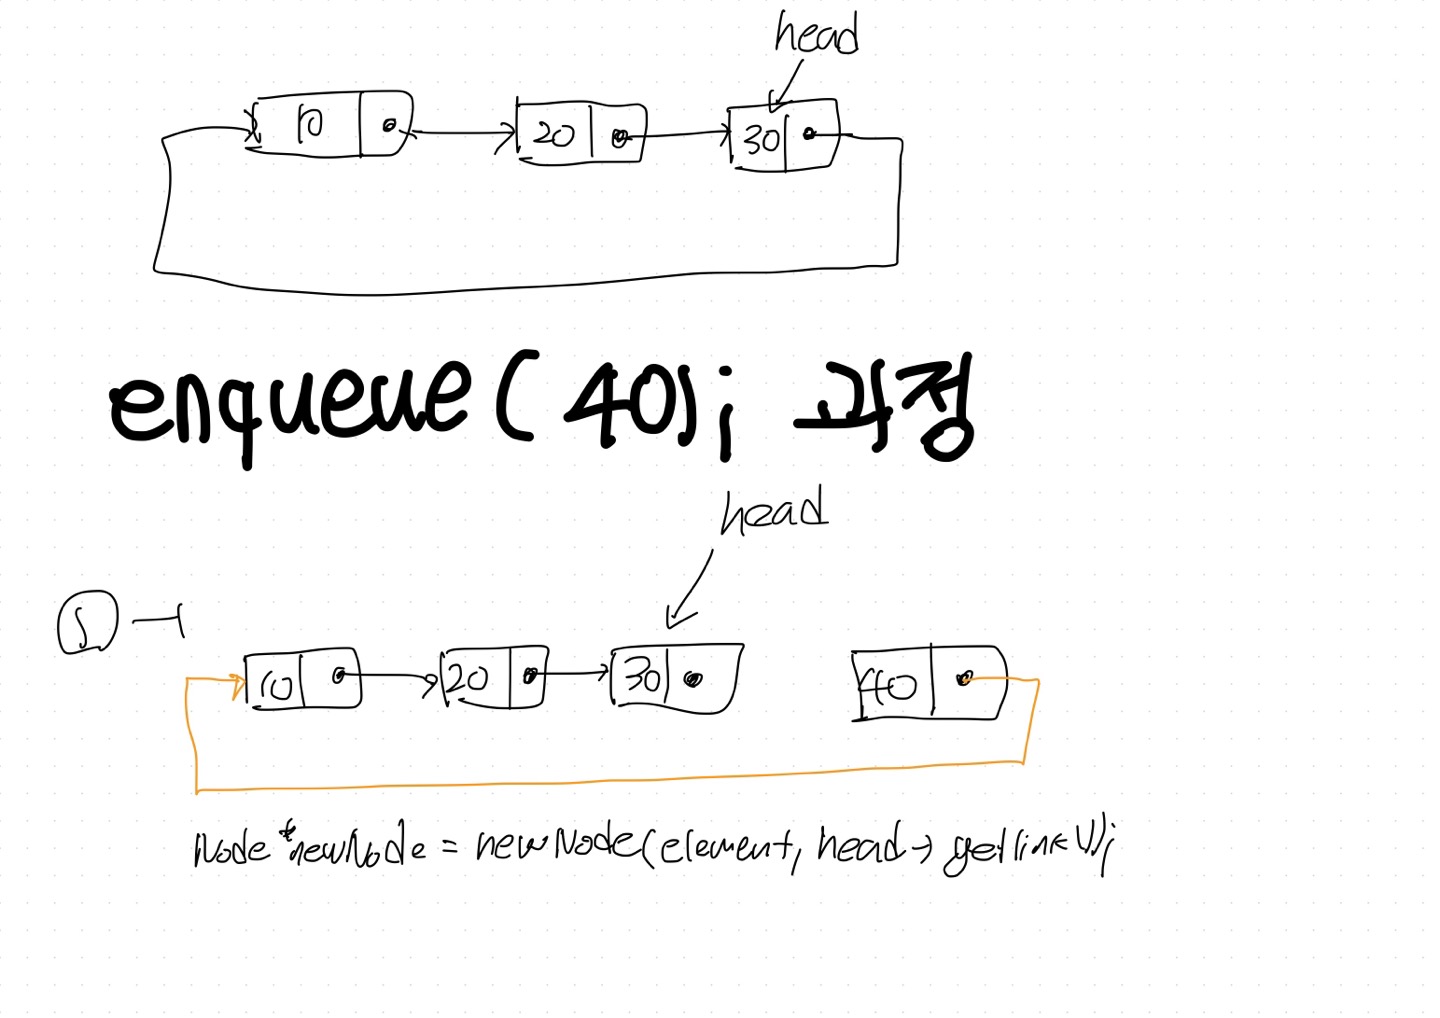 head
10 20 30
enqueue(40); 과정
head
10 20 30 40
Node *newNode = new Node(element, head→getlink());